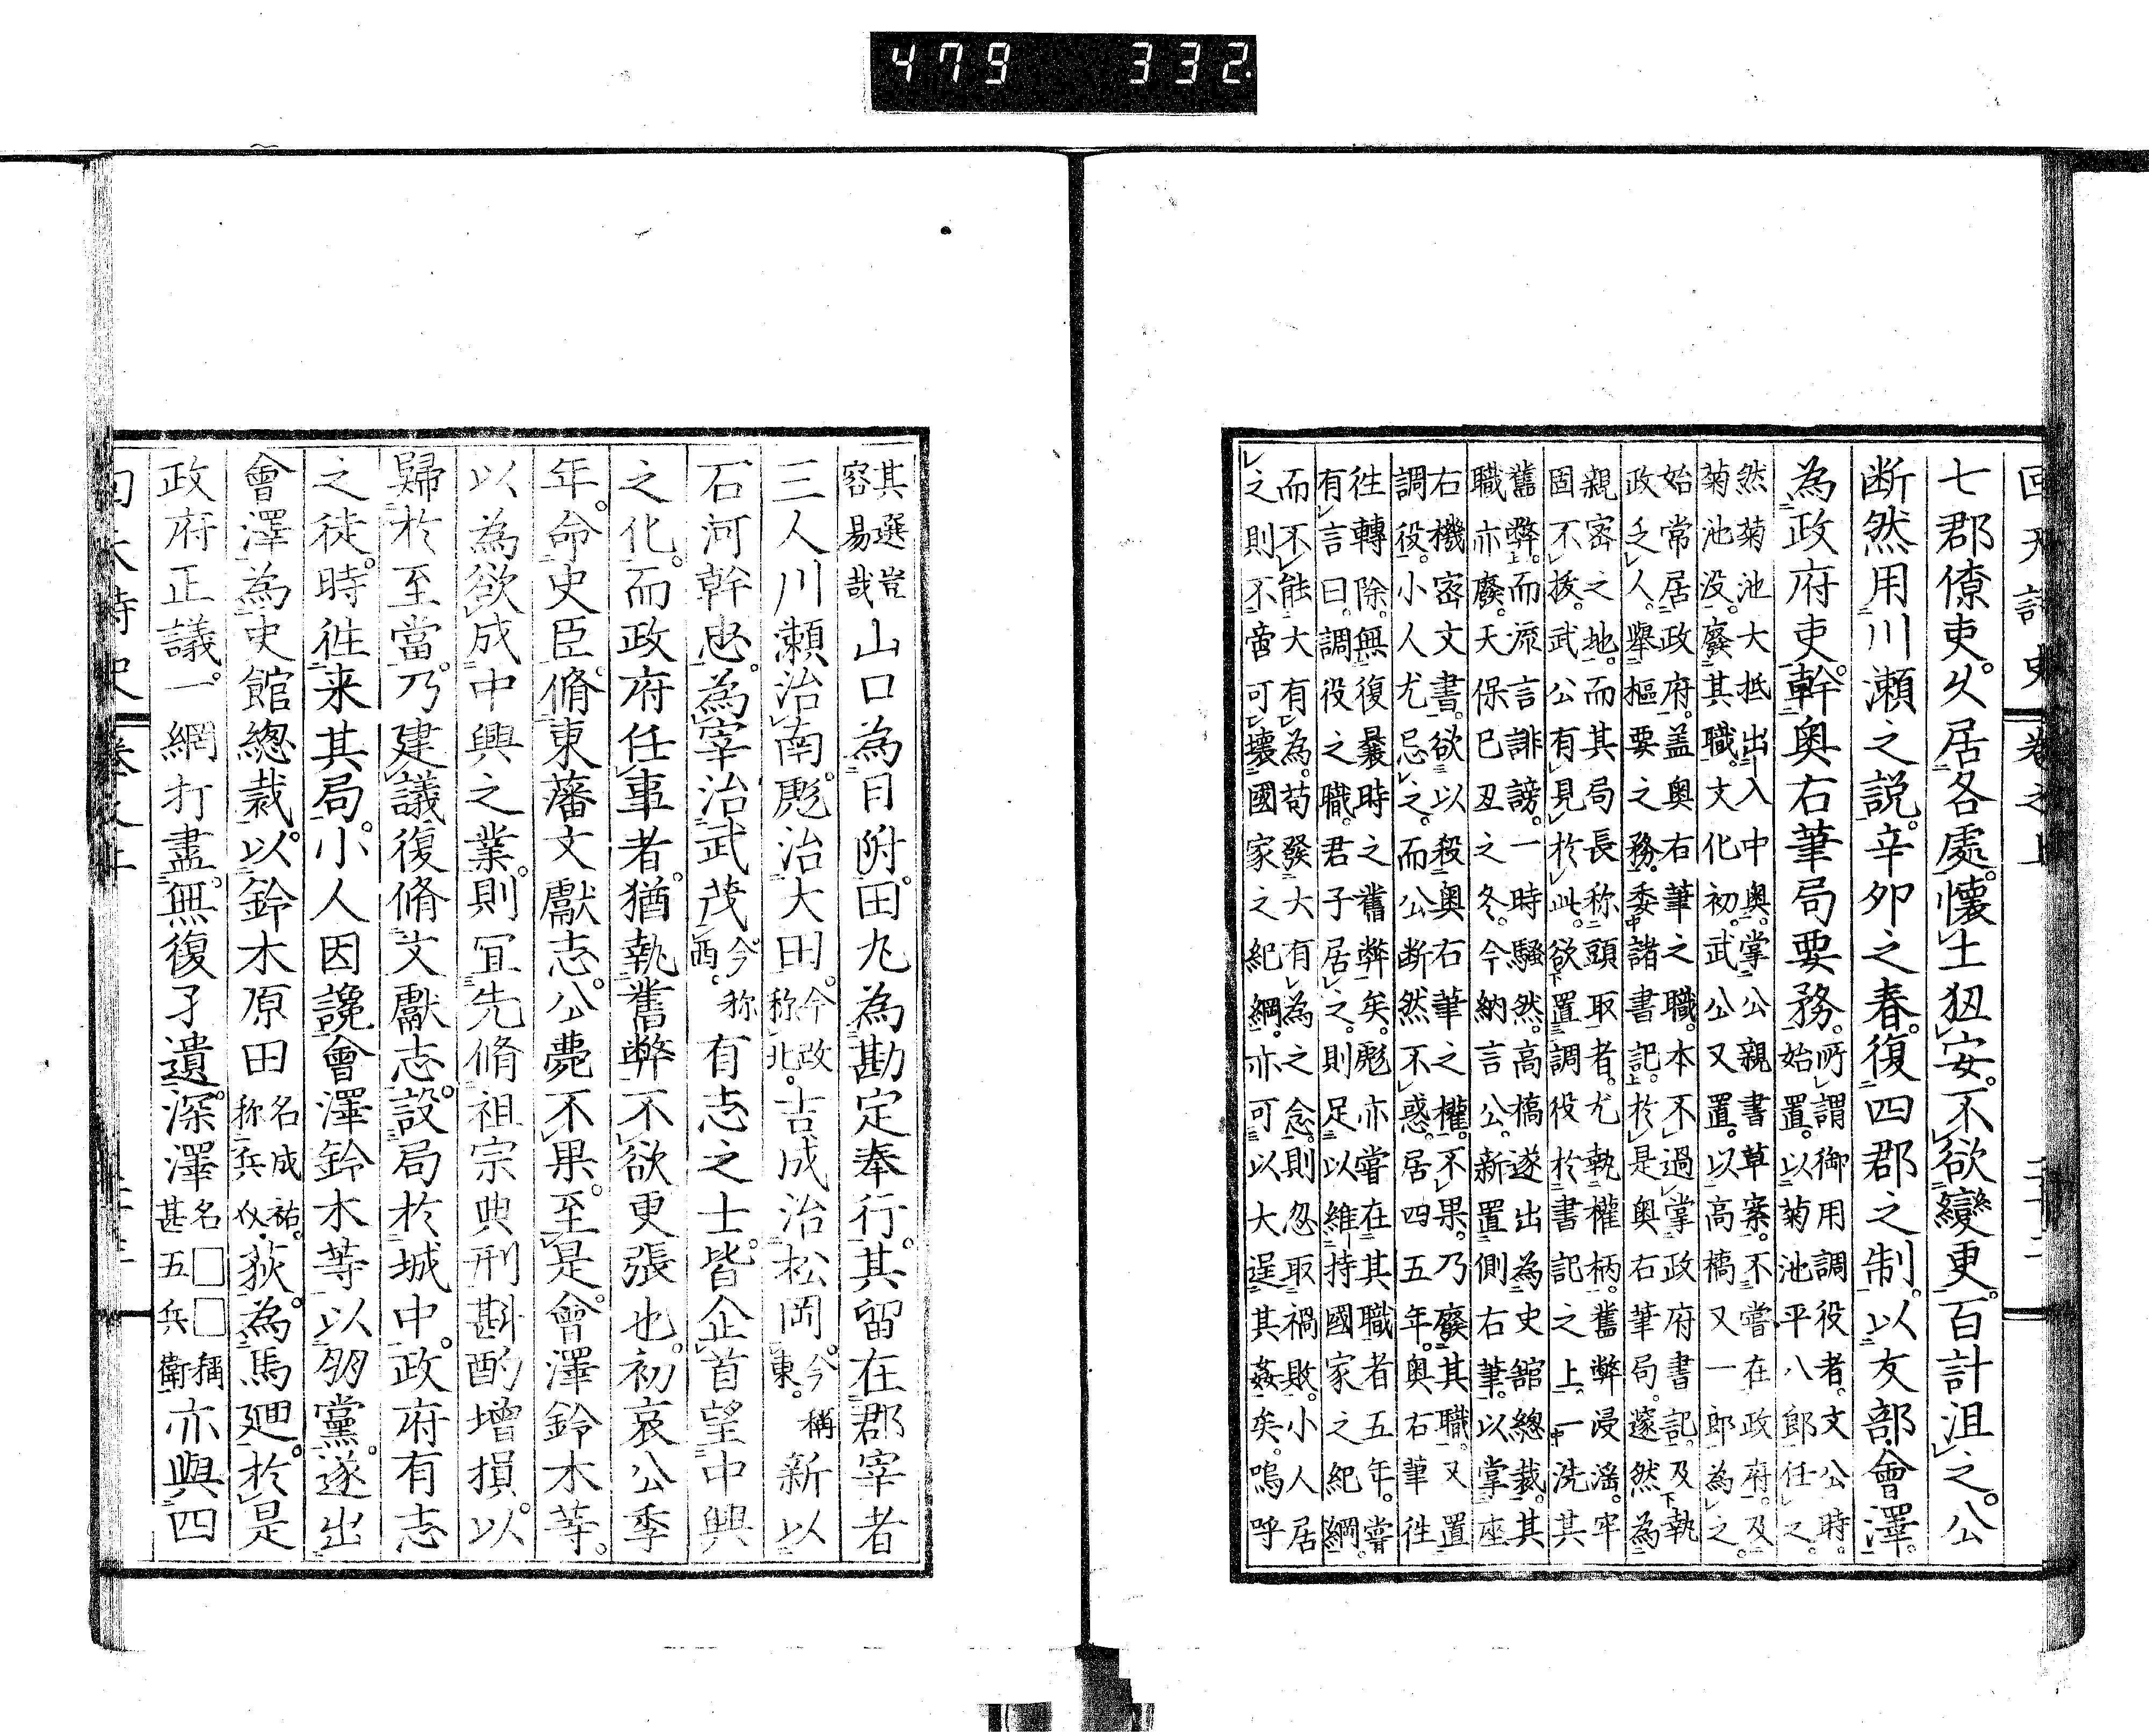 479 332
回天詩史 卷之上
七郡僚吏。久居各處。懷土狃安。不欲變更。百計沮之。公
断然用川瀬之説。辛卯之春。復四郡之制。以友部會澤。
為政府吏。幹奥右筆局要務。所謂御用調役者。文公時。
始置。以菊池平八郎任之。
然菊池大抵出入中奥。掌公親書草案。不嘗在政府。及
菊池没。廢其職。文化初。武公又置。以高橋又一郎為之。
始常居政府。盖奥右筆之職。本不過掌政府書記。及執
政乏人。舉樞要之務。委諸書記。於是奥右筆局。邃然為
親密之地。而其局長称頭取者。尤執權柄。舊弊浸滛。牢
固不拔。武公有見於此。欲置調役於書記之上。一洗其
舊弊。而流言誹謗。一時騒然。高橋遂出為史舘總裁。其
職亦廢。天保己丑之冬。今納言公。新置側右筆。以掌座
右機密文書。欲以殺奥右筆之權。不果。乃廢其職。又置
調役。小人尤忌之。而公断然不惑。居四五年。奥右筆徃
徃轉除。無復曩時之舊弊矣。彪亦嘗在其職者五年。嘗
有言曰。調役之職。君子居之。則足以維持國家之紀綱。
而不能大有為。苟發大有為之念。則忽取禍敗。小人居
之則不啻可壊國家之紀綱。亦可以大逞其姦矣。嗚呼
其選豈
容易哉 山口為目附。田丸為勘定奉行。其留在郡宰者
三人川瀬治南。彪治大田。今改
称北。吉成治松岡。今稱
東。新以
石河幹忠。為宰治武茂今称
西。有志之士。皆企首望中興
之化。而政府任事者。猶執舊弊不欲更張也。初哀公季
年。命史臣。脩東藩文獻志。公薨不果。至是。會澤鈴木等。
以為欲成中興之業。則冝先脩祖宗典刑斟酌增損。以
歸於至當。乃建議復脩文獻志。設局於城中。政府有志
之徒。時徃来其局。小人因讒會澤鈴木等以朋黨。遂出
會澤。為史館總裁。以鈴木原田名成祐。
称兵介・荻。為馬廻。於是
政府正議。一網打盡。無復孑遺。深澤名□□稱
甚五兵衛亦與四